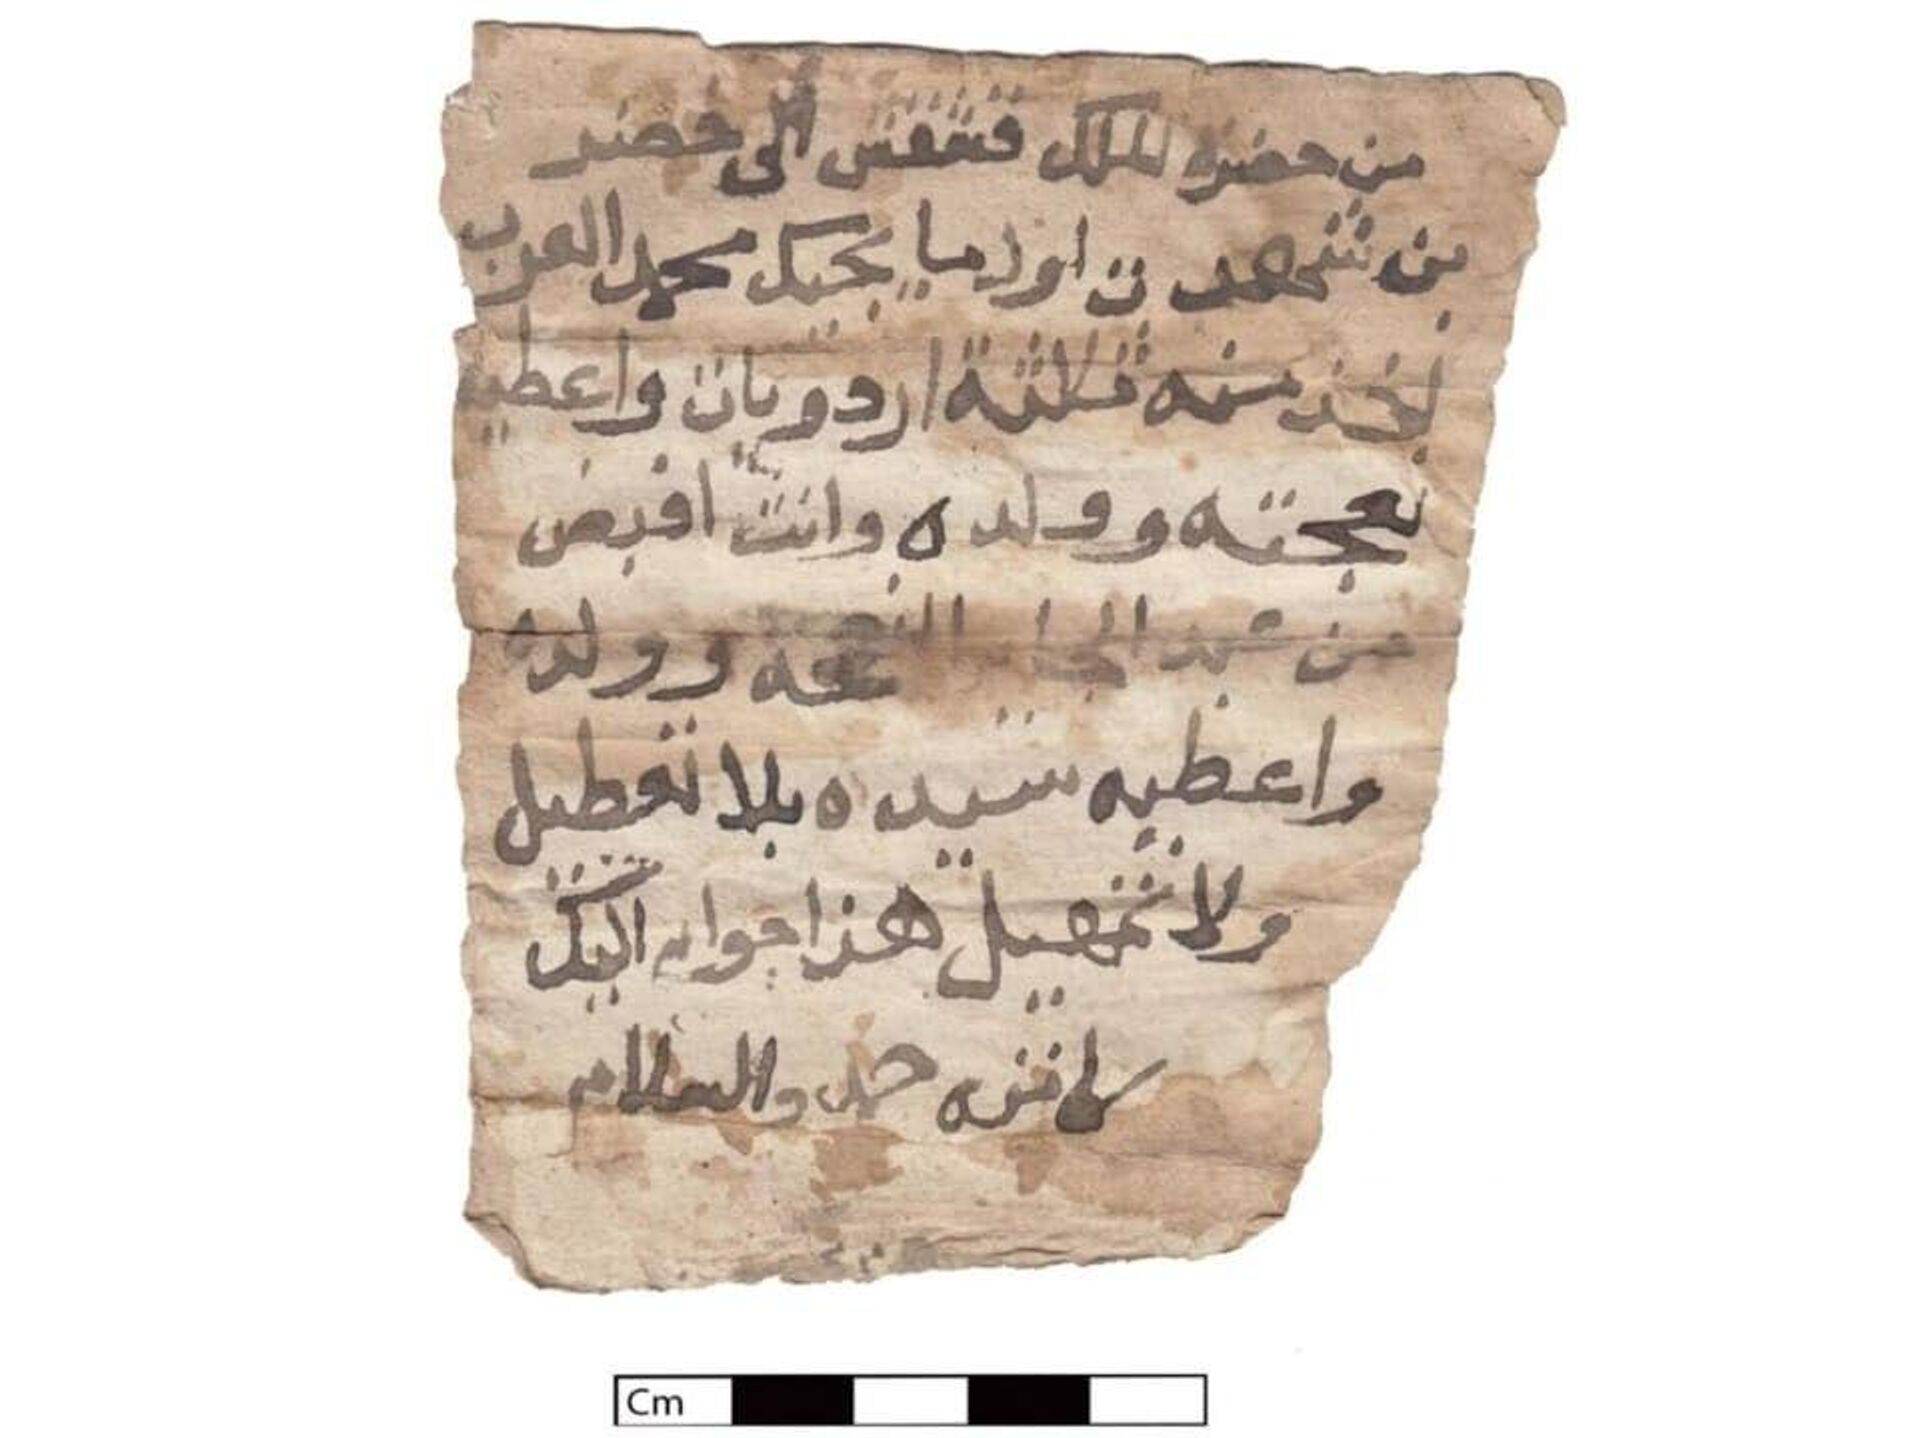 من حضرة الملك قشقش الى خضر
بن شمهدت اول ما يجيك محمد العرب
ياخذ منه ثلاثة اردويات واعطيه
نعجته وولده وانت اقبض
من عبد الجابر النعجه وولده
واعطيه سيده بلا تعطيل
ولا تمهيل هذا جوابي اليك
كاتبه حمد والسلام
Cm